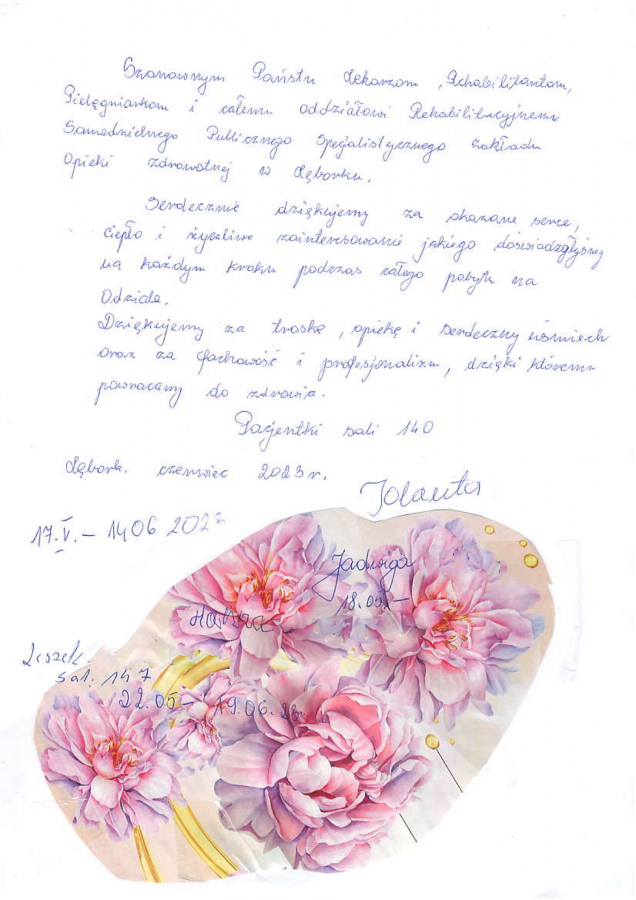 Szanownym Państu Lekarzom, Rehabilitantom,
Pielęgniarkom i całemu oddziałowi Rehabilitacyjnemu
Samodzielnego Publicznego Specjalistycznego zakładu
Opieki zdrowotnej w Lęborku.
Serdecznie dziękujemy za okazane serce,
ciepło i życzliwe zainteresowanie jakiego doświadczyłyśmy
na każdym kroku podczas całego pobytu na
Odziale.
Dziękujemy za troskę, opiekę i serdeczny uśmiech
oraz za fachowość i profesjonalizm, dzięki któremu
powracamy do zdrowia.
Pacjentki sali 140
Lębork. czerwiec 2023r.
Jolanta
17.V. - 14 06 2023
Jadwiga
18.05 -
Hanna
Leszek.
sal. 147
22.05 - 19.06.23r